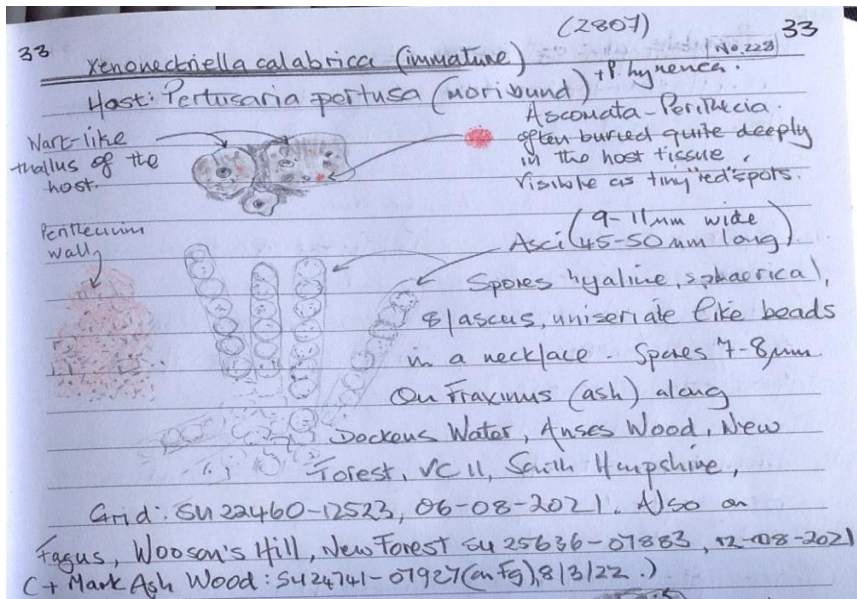 33 (2807) 33
Xenonectriella calabrica (immature) No. 228
Host: Pertusaria pertusa (moribund) + P. hymenea.
Wart-like
thallus of the
host.
Ascomata - Perithecia.
often buried quite deeply
in the host tissue,
Visible as tiny "red" spots.
Perithecium
wall
Asci (9-11µm wide
45-50µm long)
Spores hyaline, sphaerical,
8/ascus, uniseriate like beads
in a necklace. Spores 7-8µm.
On Fraxinus (ash) along
Dockens Water, Anses Wood, New
Forest, VC 11, South Hampshire,
Grid: SU 22460-12523, 06-08-2021. Also on
Fagus, Wooson's Hill, New Forest SU 25636-07883, 12-08-2021
(+ Mark Ash Wood: SU 24741-07927 (on Fg), 8/3/22.)